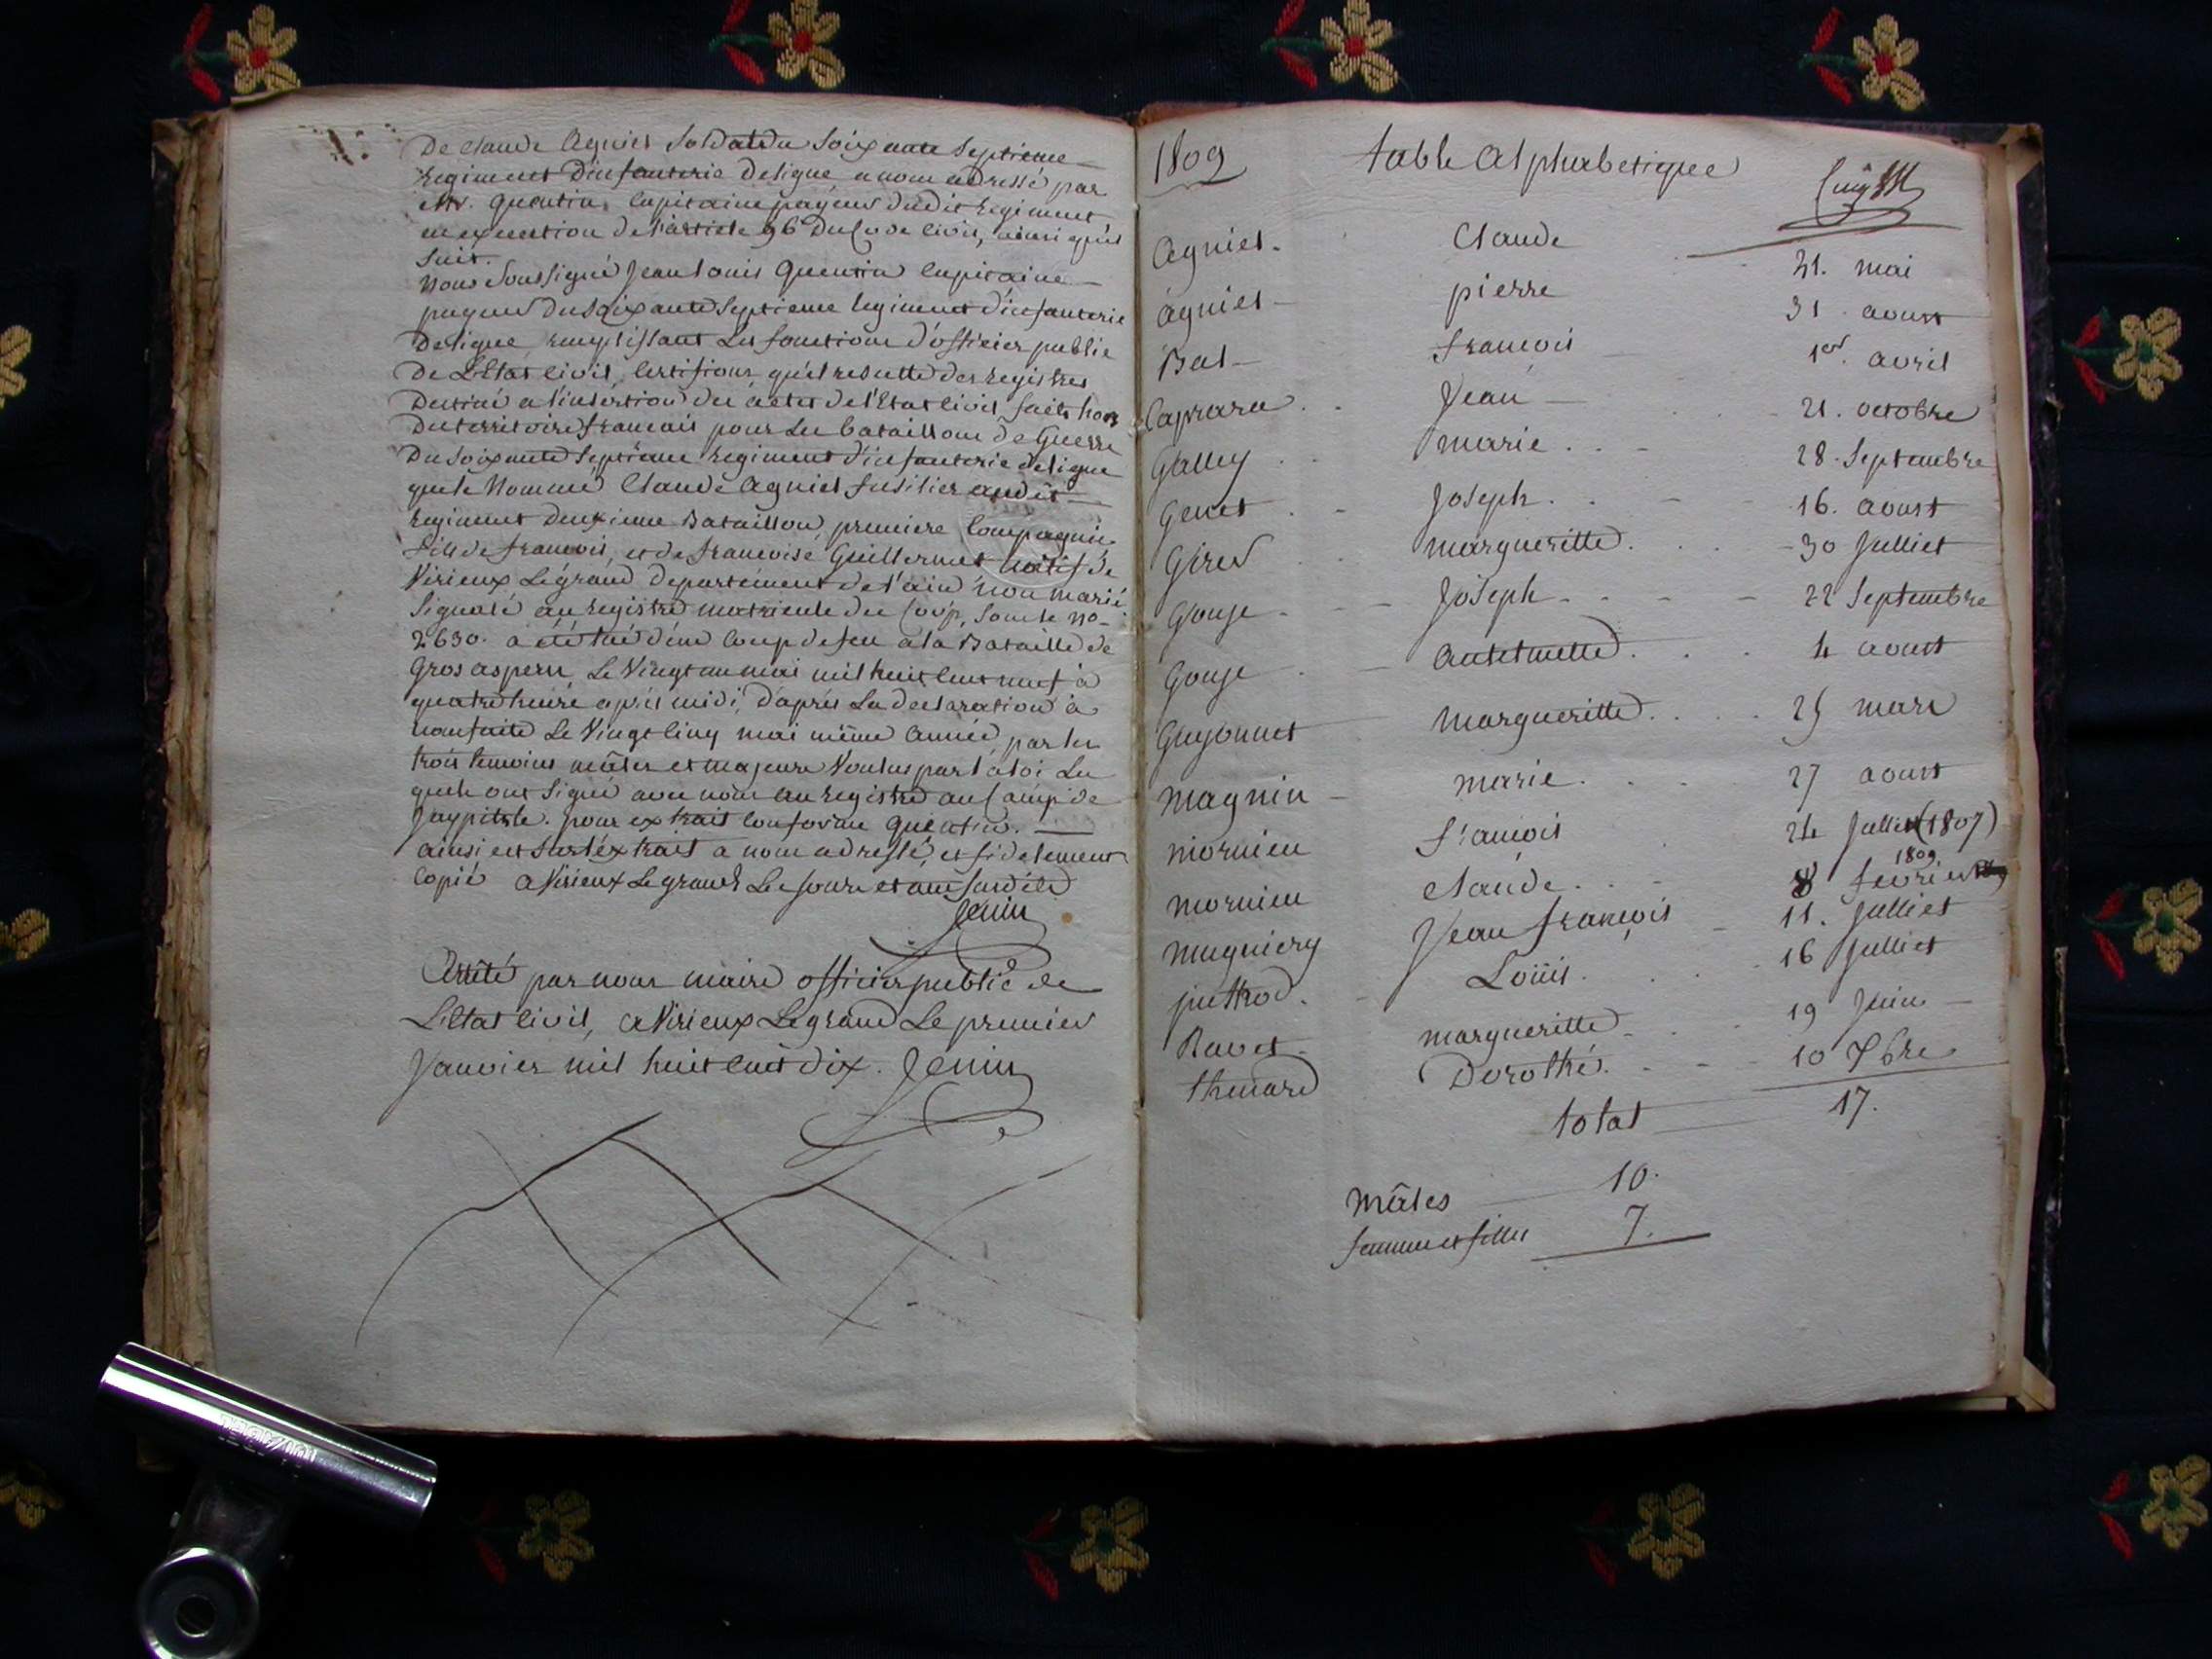 De Claude Agniel Soldat du Soixante Septieme
regiment D'infanterie De ligne a nous adressé par
Mr. Quentin, Capitaine payeur dudit regiment
en execution de l'article 96 Du Code civil, ainsi qu'il
suit.
Nous Soussigné Jean Louis Quentin Capitaine
payeur Du Soixante Septieme regiment d'infanterie
De ligne, remplissant Les fonctions d'officier public
De L'Etat civil, Certifions qu'il resulte des registres
Destiné a l'insertion des actes de l'Etat civil faits hors
Du territoire francais pour Les bataillons de Guerre
Du Soixante Septieme regiment d'infanterie de ligne
que le Nommé Claude Agniel fusilier audit
regiment deuxieme Bataillon, premiere Compagnie
fils de francois, et de francoise Guillermet natif de
Virieux Legrand departement de l'ain non marié
Signalé au registre matricule du Corp, Sous le no-
2630. a été tué d'un Coup de feu a la Bataille de
Gros aspern Le Vingt un mai mil huit Cent neuf à
quatre heure après midi, d'après La declaration à
nous faite Le Vingt Cinq mai même année, par les
trois temoins mâles et majeurs Voulus par la loi Les
quels ont Signé avec nous au registre au Camp de
pour extrait Conforme Quentin.
ainsi est Sur l'extrait a nous adressé, et fidelement
Copié a Virieux Legrand Le Jour et an Susdite
Jenin
Arrêté par nous maire officier public de
L'Etat Civil, a Virieux Legrand Le premier
Janvier mil huit Cent dix. Jenin
1809 table Alphabetique
Agniel - Claude 21. mai
Agniel - pierre 31. aoust
Bal - francois 1er. avril
Caprara . . Jean 21. octobre
Galley . . marie . . - 28. Septembre
Genet . - Joseph . . - 16. aoust
Girel . . margueritte . . . 30 Julliet
Gouje - - - Joseph - - - - 22 Septembre
Gouje . - Antelmette . . . 4 aoust
Guyonnet margueritte . . . . 25 mars
Magnin - marie . . - 27 aoust
mornieu francois 24 Julliet (1807)
1809
mornieu claude . . - 8 fevrier
mugniery Jean francois - 11. Julliet
puthod. - Loüis . . . 16 Julliet
Ravet - margueritte - . . 19 Juin -
thenard Dorothé. - - - 10 7bre
total 17.
Mâles 10.
femmes et filles 7.